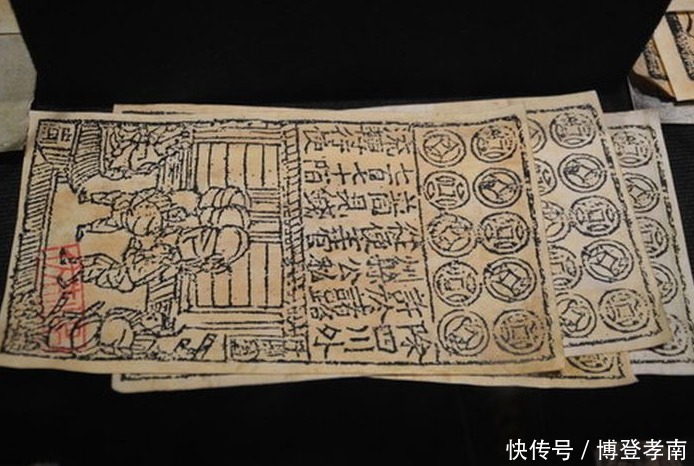 除四川外
許於諸路
州縣公私
從便主管
並同見錢
七百七十陌
流轉行使
快传号 / 博登孝南